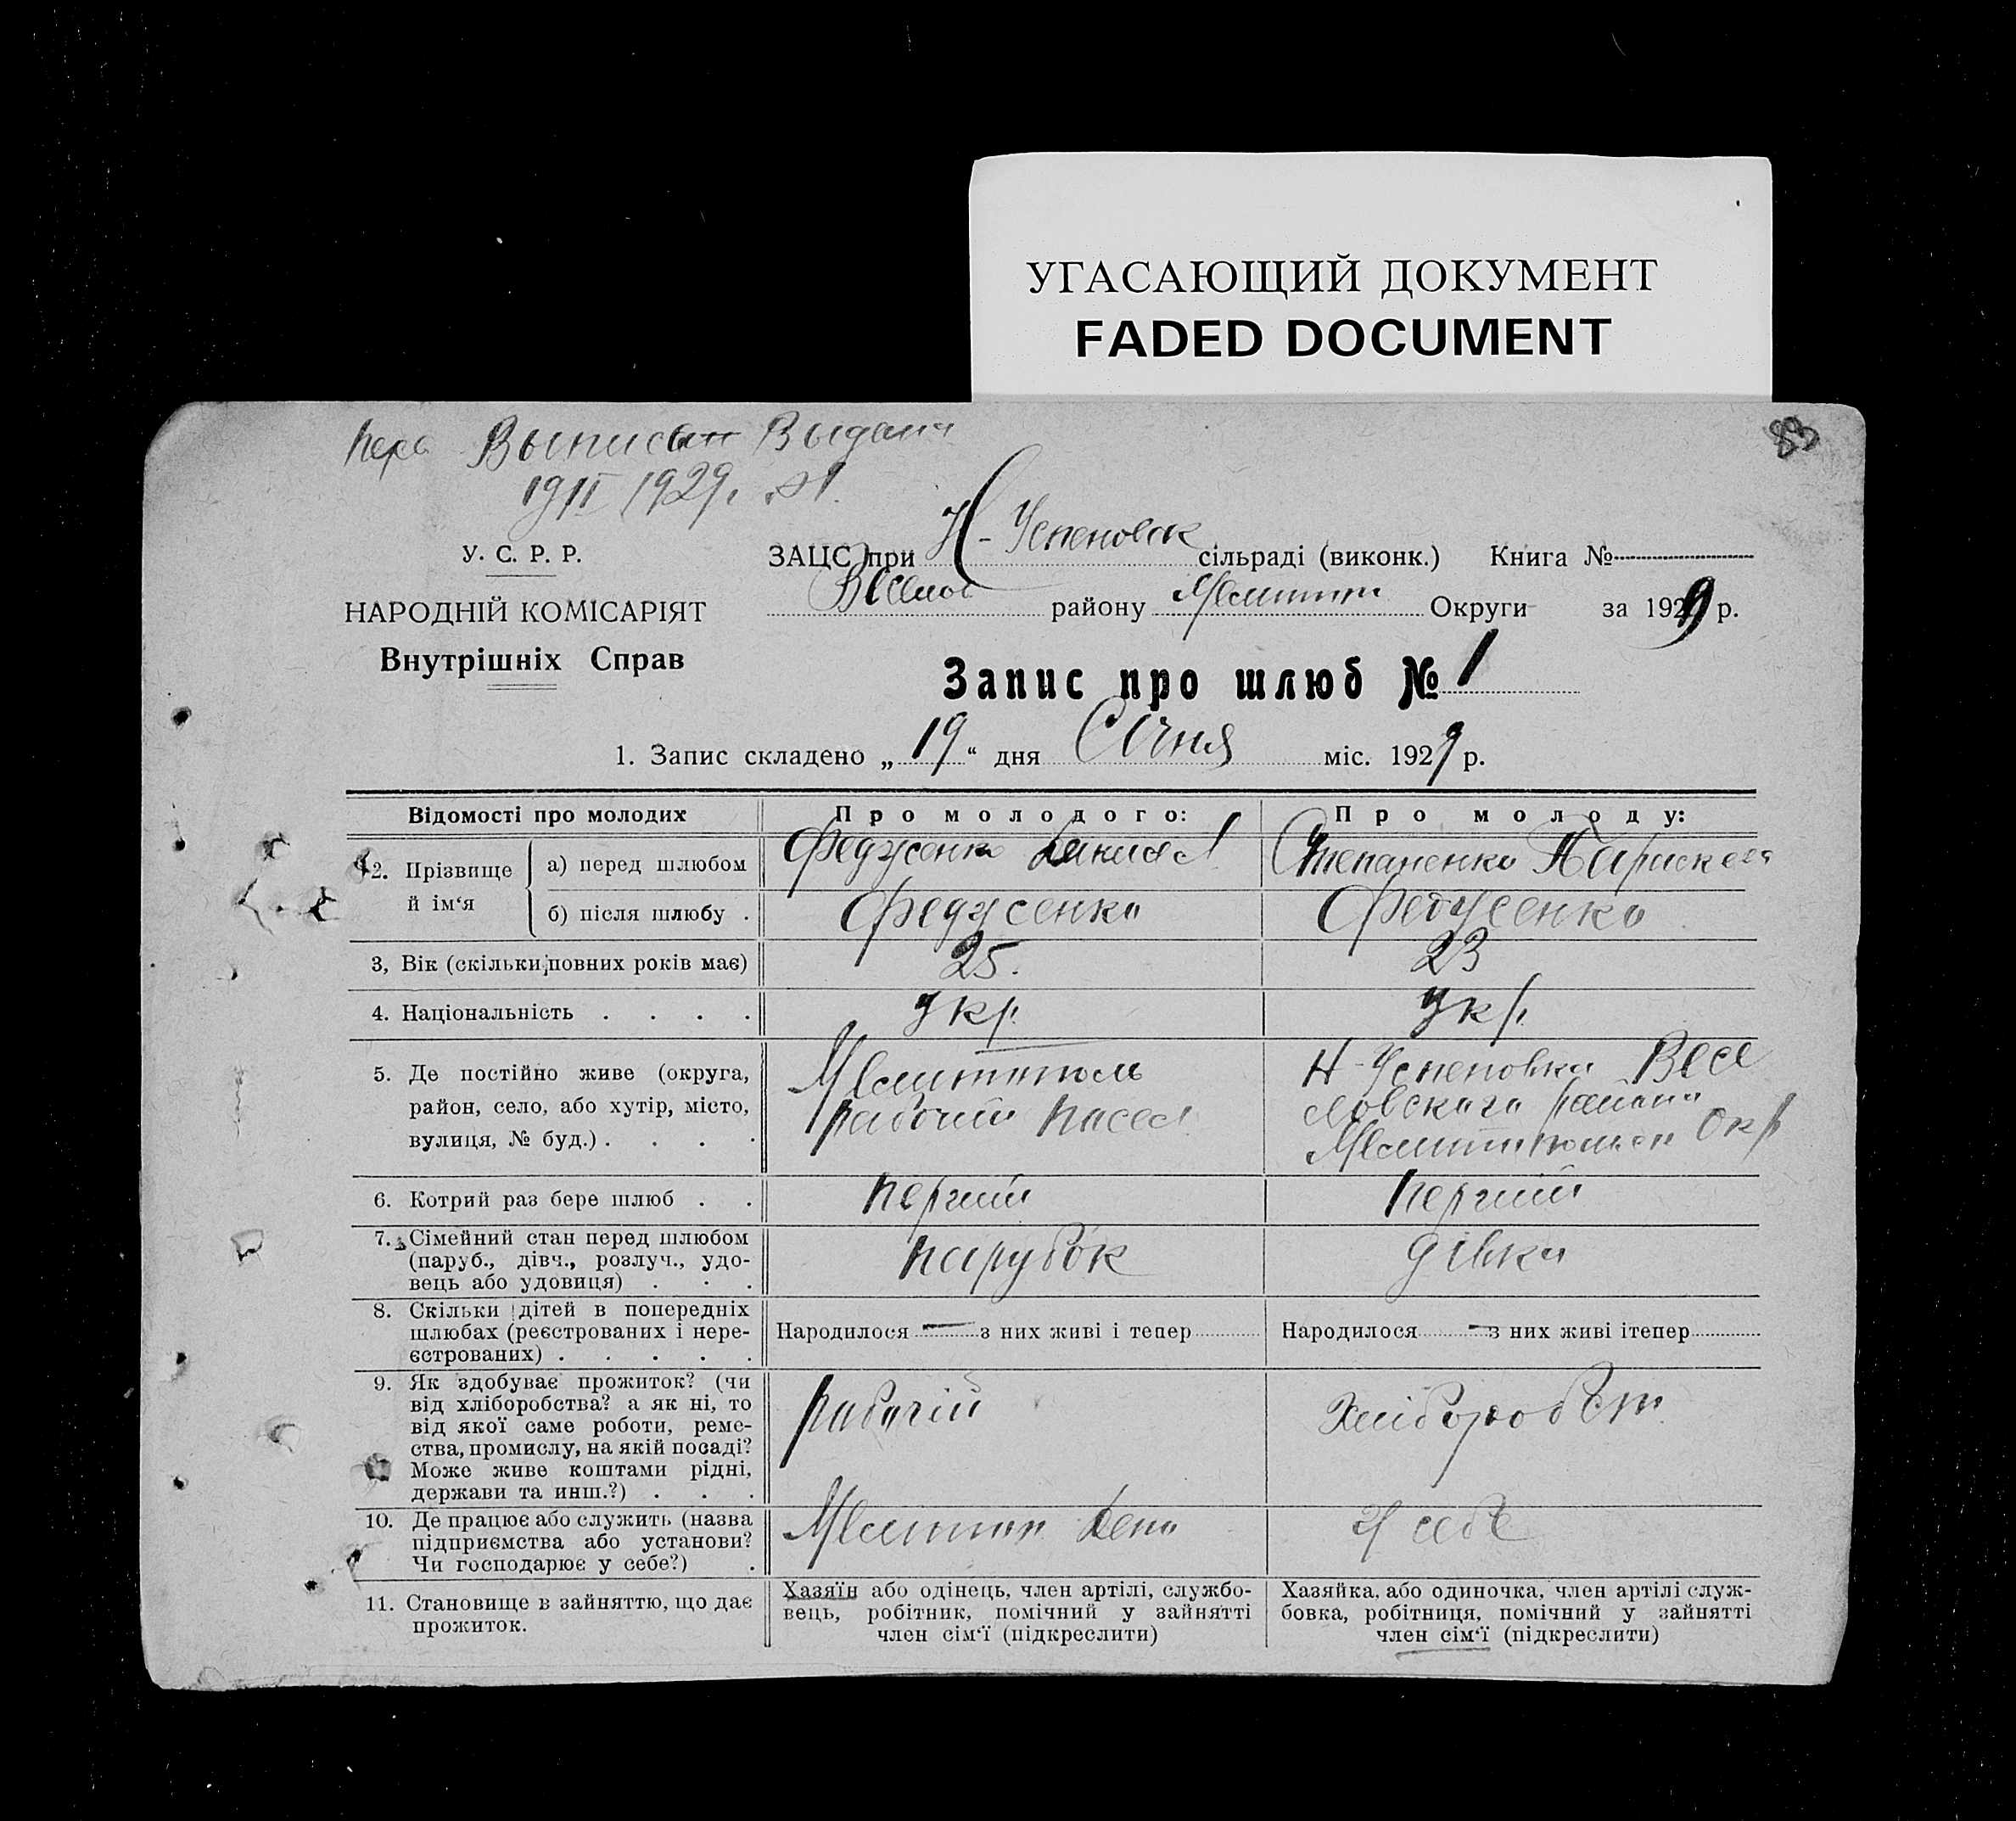 УГАСАЮЩИЙ ДОКУМЕНТ
FADED DOCUMENT
83
Выписан Выдана
19 II 1929 г. №1.
У. С. Р. Р.
НАРОДНІЙ КОМІСАРІЯТ
Внутрішніх Справ
ЗАЦС при Н-Успеновск сільраді (виконк.) Книга №
Весело району Мелитоп Округи за 1929 р.
Запис про шлюб № 1
1. Запис складено „19“ дня Січня міс. 1929 р.
Відомості про молодих
Про молодого:
Про молоду:
2. Прізвище й ім‘я
а) перед шлюбом
Федусенко Данило
Степаненко Параскева
б) після шлюбу .
Федусенко
Федусенко
3, Вік (скільки повних років має)
25.
23
4. Національність . . . .
Укр.
Укр.
5. Де постійно живе (округа,
район, село, або хутір, місто,
вулиця, № буд.) . . . .
Мелитополь
рабочий посел
Н-Успеновка Весе
ловскаго района
Мелитопольск Окр
6. Котрий раз бере шлюб . .
перший
перший
7. Сімейний стан перед шлюбом
(паруб., дівч., розлуч., удо-
вець або удовиця) . . .
парубок
дівка
8. Скільки дітей в попередніх
шлюбах (реєстрованих і нере-
єстрованих) . . . . .
Народилося — з них живі і тепер
Народилося — з них живі ітепер
9. Як здобуває прожиток? (чи
від хліборобства? а як ні, то
від якої саме роботи, реме-
ства, промислу, на якій посаді?
Може живе коштами рідні,
держави та инш.?) . . .
рабочій
Хліборобст.
10. Де працює або служить (назва
підприємства або установи?
Чи господарює у себе?) .
Мелитоп Депо
У себе
11. Становище в зайняттю, що дає
прожиток.
Хазяїн або одінець, член артілі, службо-
вець, робітник, помічний у зайнятті
член сім‘ї (підкреслити)
Хазяйка, або одиночка, член артілі служ-
бовка, робітниця, помічний у зайнятті
член сім‘ї (підкреслити)